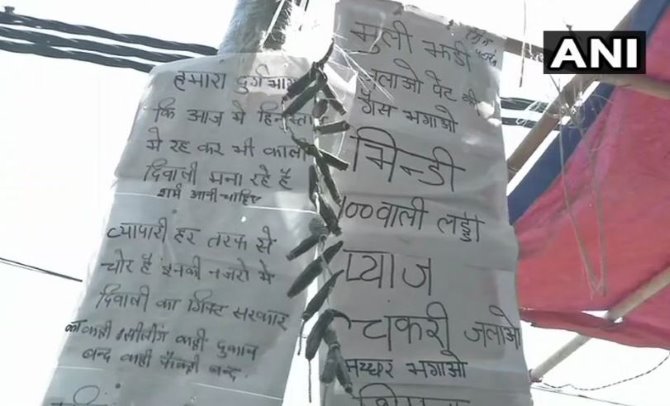 ANI
हमारा
कि आज मे
मे रह कर भी काली
दिवाली मना रहे है
शर्म आनी चाहिए
व्यापारी हर तरफ से
चोर है इनकी नजरो मे
दिवाली का गिफ्ट सरकार
का कही सीलींग कही दुकान
बन्द कही फैक्ट्री बन्द
मुली झडी
जलाओ पेट की
गैस भगाओ
भिन्डी
100वाली लड्डी
प्याज
चकरी जलाओ
मच्छर भगाओ